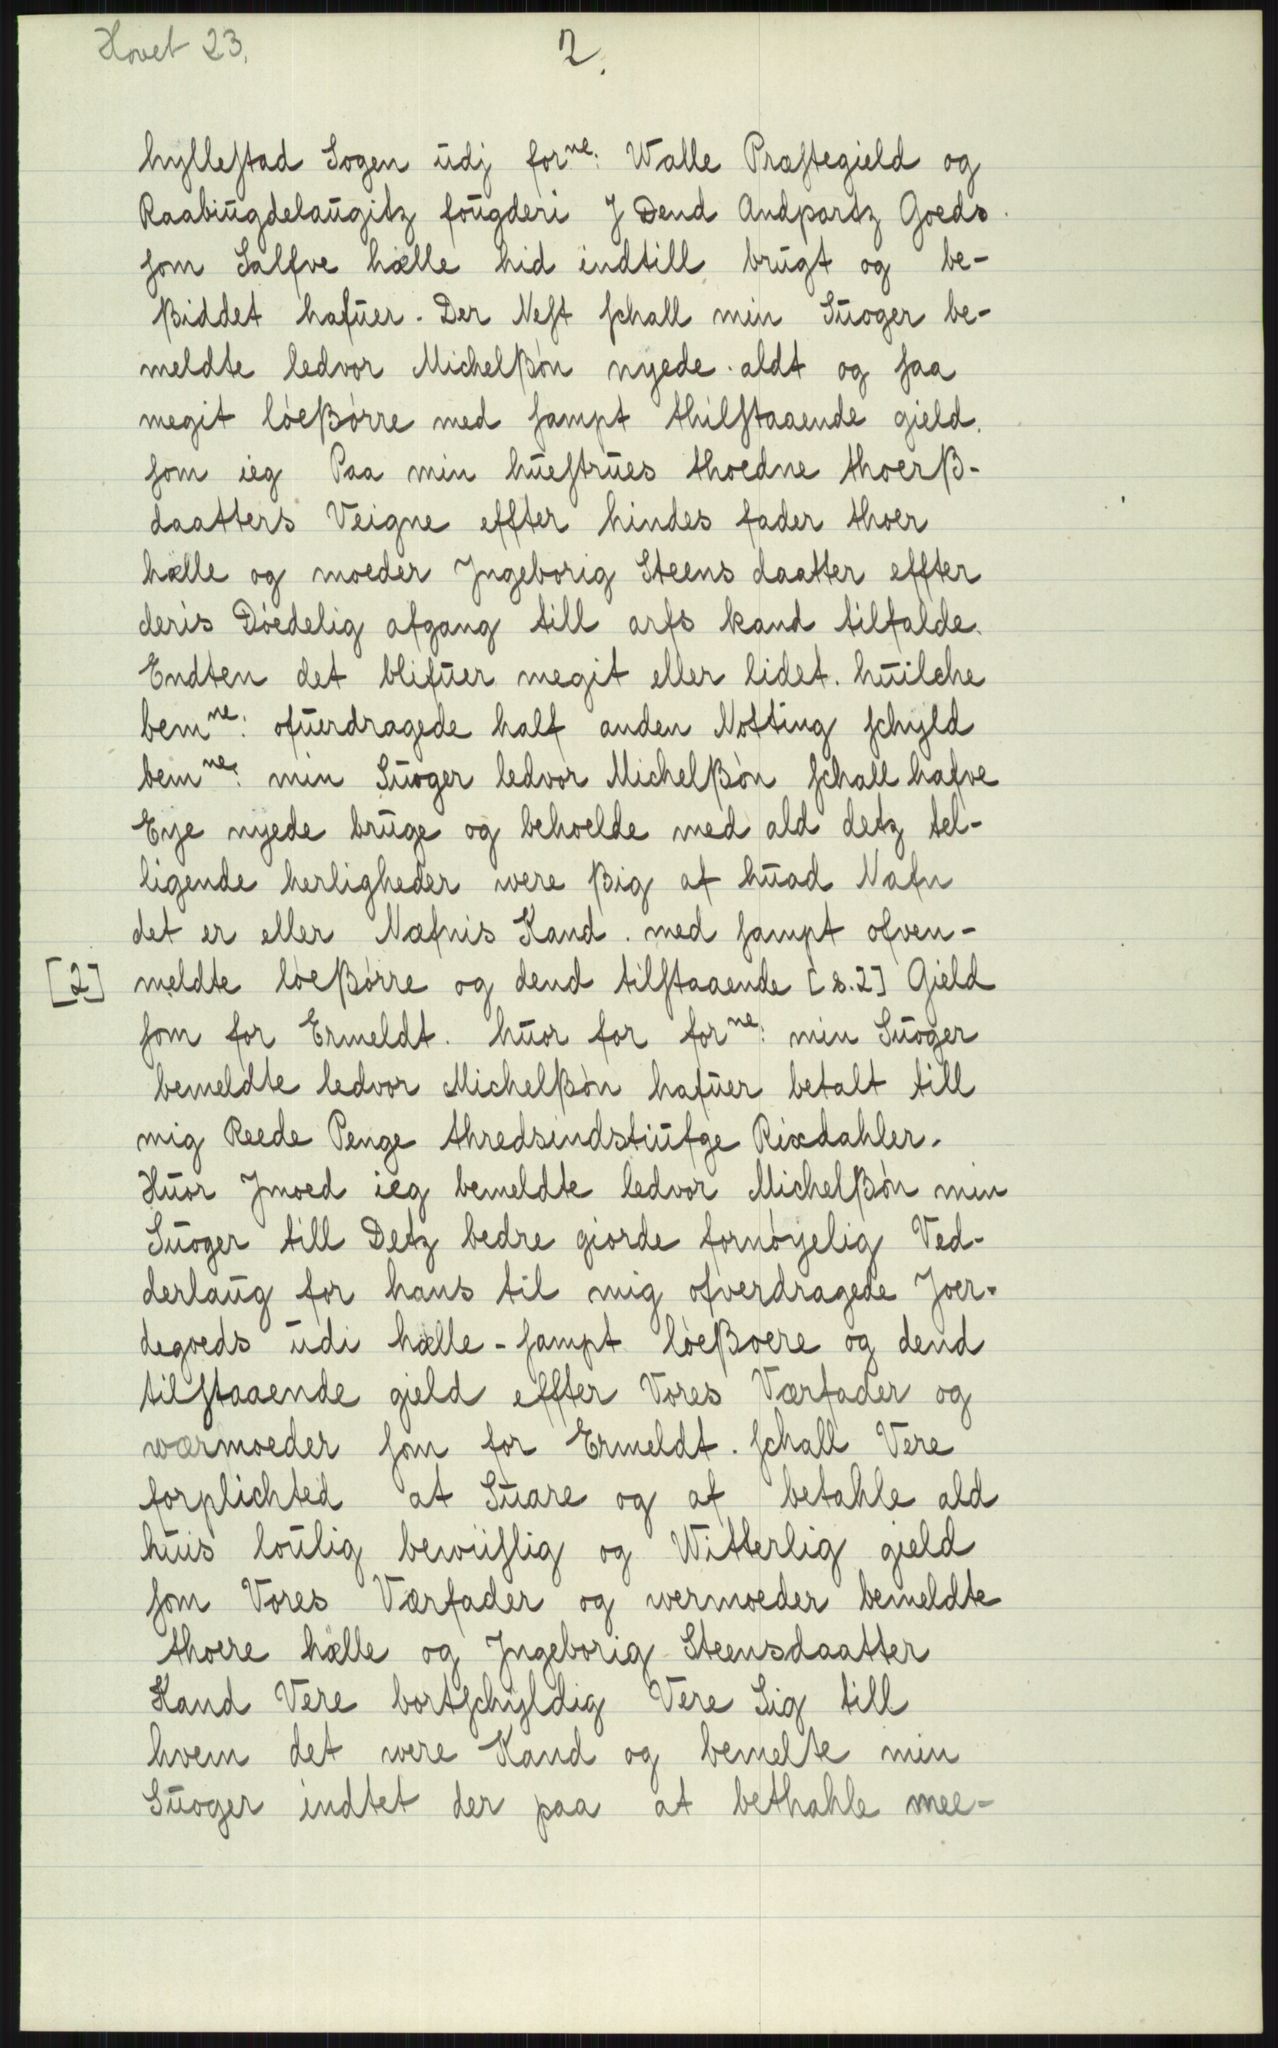 Hovet 23.
2.
hylleſtad Sogen udj forne: Walle Præſtegield og
Raabiugdelaugitz fougderi J Dend Andpartz Goeds
ſom Salfve hælle hid indtill brugt og be-
ßiddet hafuer. Der Neſt ſchall min Suoger be-
meldte ledvor Michelßön nyede aldt og ſaa
megit löeßörre med ſampt thilſtaaende gield.
ſom ieg Paa min hueſtrues thoedne thoerß-
daatters Veigne effter hindes fader thoer
hælle og moeder Jngeborig Steens daatter effter
deris Döedelig afgang till arfs kand tilfalde.
Endten det blifuer megit eller lidet. huilche
bemne: ofuerdragede half anden Notting ſchyld
bemne: min Suoger ledvor Michelßön ſchall hafve
Eye nyede bruge og behoelde med ald detz tel-
ligende herligheder were ßig af huad Nafn
det er eller Næfnis Kand. med ſampt ofven-
[2] meldte löeßörre og dend tilſtaaende [s.2] Gield
ſom for Ermeldt. huor for forne: min Suoger
bemeldte ledvor Michelßön hafuer betalt till
mig Reede Penge thredsindstiufge Rixdahler.
Huor Jmoed ieg bemeldte ledvor Michelßön min
Suoger till Detz bedre giorde fornöyelig Ved-
derlaug for hans til mig ofverdragede Joer-
degoeds udi hælle - ſampt löeßoere og dend
tilſtaaende gield effter Vores Værfader og
wærmoeder ſom for Ermeldt. ſchall Vere
forplichted at Suare og af betahle ald
huis loulig bewiiſlig og Witterlig gield
ſom Vores Værfader og wermoeder bemeldte
thoere hælle og Jngeborig Steensdaatter
Kand Vere bortſchyldig Vere Sig till
hvem det were Kand og bemelte min
Suoger indtet der paa at bethahle mee-